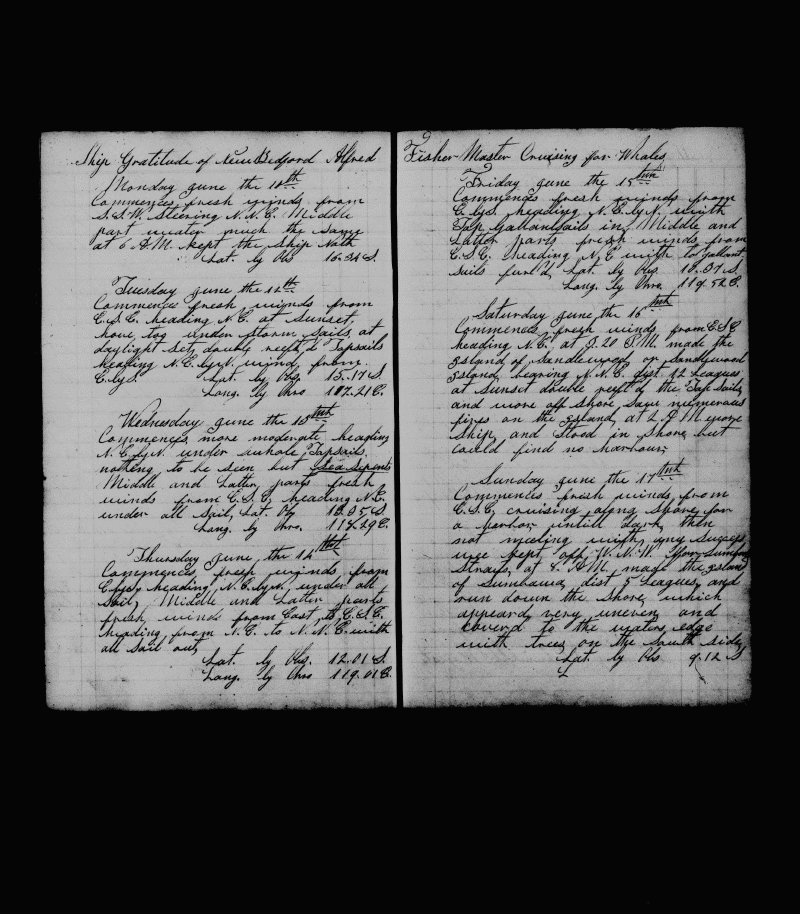 Ship Gratitude of New Bedford Alfred
Monday June the 11th
Commences fresh winds from
S.S.W. Steering N.N.E. Middle
part weather much the same
at 6 A.M. kept the Ship North
Lat. by Obs 16.34 S.
Tuesday June the 12th
Commences fresh winds from
E.S.E. heading N.E. at Sunset,
hove too under storm sails at
daylight set double reef'd Topsails
heading N.E.byN. wind from
E.byS. Lat. by Obs 15.17 S
Long. by Chro 117.21 E.
Wednesday June the 13th
Commences more moderate heading
N.E.byN. under whole Topsails,
nothing to be seen but Sea Sepents
Middle and Latter, parts fresh
winds from E.S.E, heading N.E.
under all Sail, Lat. Obs 13.35 S
Long. by Chro. 118.29 E.
Thursday June the 14th
Commences, fresh winds from
E.byS. heading N.E.byN. under all
Sail, Middle and Latter parts
fresh winds from East to E.S.E.
heading from N.E. to N.N.E. with
all Sail out,
Lat. by Obs. 12.01 S.
Long. by Chro 119.01 E.
Fisher Master Cruising for Whales
Friday June the 15th
Commences fresh winds from
E.byS. heading N.E.byN. with
Top Gallantsails in, Middle and
Latter parts fresh winds from
E.S.E. heading N.E with to'gallant
sails furl'd, Lat. by Obs 10.37 S.
Long. by Chro. 119.52 E.
Saturday June the 16th
Commences, fresh winds from E.S.E
heading N.E. at 3.20 P.M. made the
Island of Sandlewood or Sandlewood
Island, bearing N.N.E. dist 12 Leagues
at Sunset double reef'd the Top Sails
and wore off Shore, Saw numerous
fires on the Island, at 2 A M wore
Ship, and Stood in Shore, but
could find no harbour,
Sunday June the 17th
Commences fresh winds, from
E.S.E, cruising along Shore, for
a harbor untill dark, then
not meeting with, any success,
we kept off, W.N.W.
Straits, at 8. A.M. made the Island
of Sumbawa, dist 5 Leagues, and
run down the Shore, which
appeard, very uneven, and
coverd to the waters, edge
with trees, on the South side,
Lat. by Obs 9.12 S
L